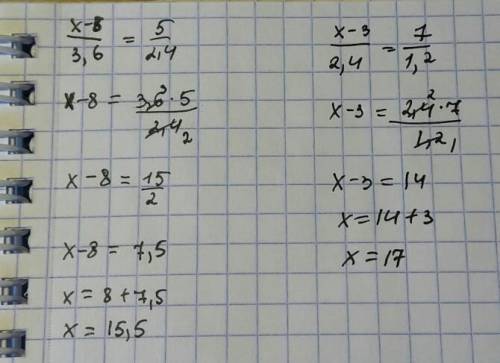 x-8/3,6 = 5/2,4
x-8 = 3,6³·5/2,4₂
x-8 = 15/2
x-8 = 7,5
x = 8+7,5
x = 15,5
x-3/2,4 = 7/1,2
x-3 = 2,4²·7/1,2₁
x-3 = 14
x = 14+3
x = 17